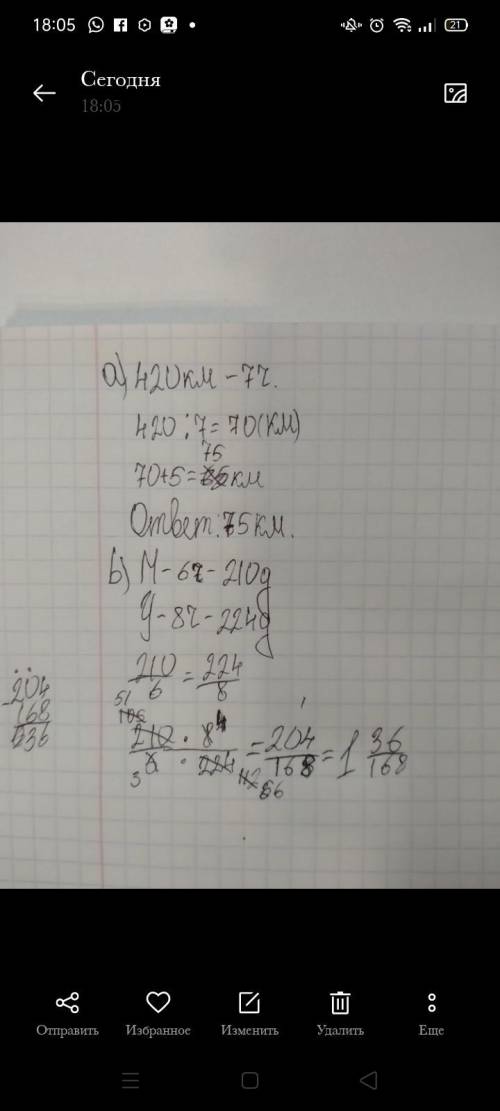 18:05 21
Сегодня
18:05
а) 420км - 7ч.
420:7=70(км)
75
70+5=км
Ответ: 75км.
b) М-6ч-210д
У-8ч-224д
210/6 = 224/8
204
-168
036
51
210 · 8 4
3 6 · 224 112 56
= 204/168 = 1 36/168
Отправить Избранное Изменить Удалить Еще